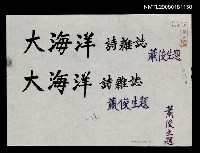 NMTL20080181150
大海洋 詩雜誌
蕭俊生題
大海洋 詩雜誌
蕭俊生題
蕭俊生題